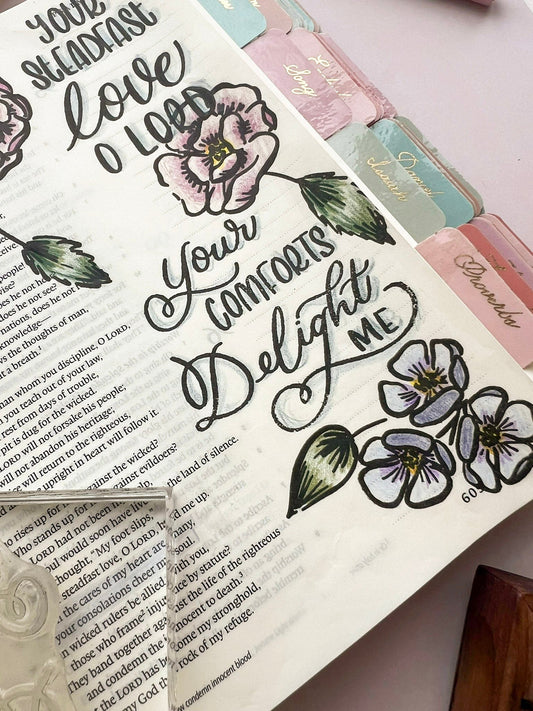 YOUR
STEADFAST
love
O LORD
Your
COMFORTS
Delight
ME
Song
Daniel
Proverbs
people!
wise?
does he not
does he not see?
nations, does he not
knowledge—
s the thoughts of man,
t a breath.
man whom you discipline, O LORD,
you teach out of your law,
rest from days of trouble,
pit is dug for the wicked.
LORD will not forsake his people;
will not abandon his heritage;
will return to the righteous,
upright in heart will follow it.
o rises up for me against the wicked?
Who stands up for me against evildoers?
LORD had not been my help,
soul would soon have lived in the land of silence.
thought, "My foot slips,"
steadfast love, O LORD, held me up.
the cares of my heart are many,
your consolations cheer my soul.
n wicked rulers be allied with you,
those who frame injustice by statute?
They band together against the life of the righteous
and condemn the innocent to death.
the LORD has become my stronghold,
my God the rock of my refuge.
condemn innocent blood